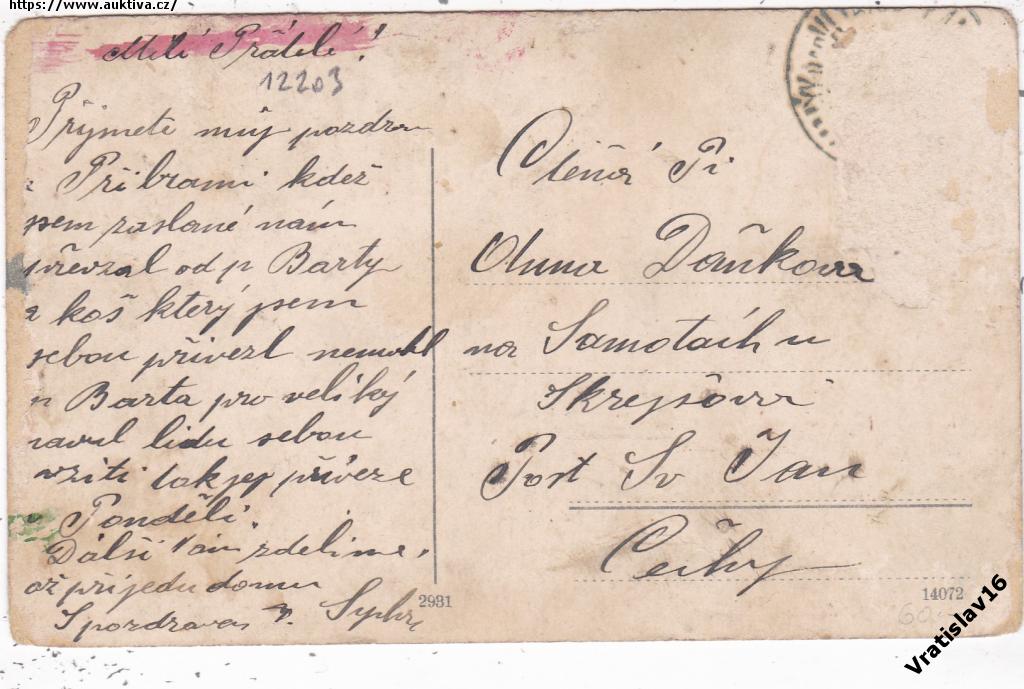 https://www.auktiva.cz/
Milí Přátelé!
12203
Přijmete můj pozdrav
z Příbrami kdež
jsem zaslané nám
převzal od p Barty
a koš který jsem
sebou přivezl nemohl
p Barta pro veliký
naval lidu sebou
vziti tak jej přiveze
v Pondělí.
Dalši Vám zdelime,
až přijedu domu
S pozdravem
2931
Ctěná Pí
Anna Daňkova
na Samotách u
Skrejšova
Post Sv Jan
Čechy
14072
Vratislav16